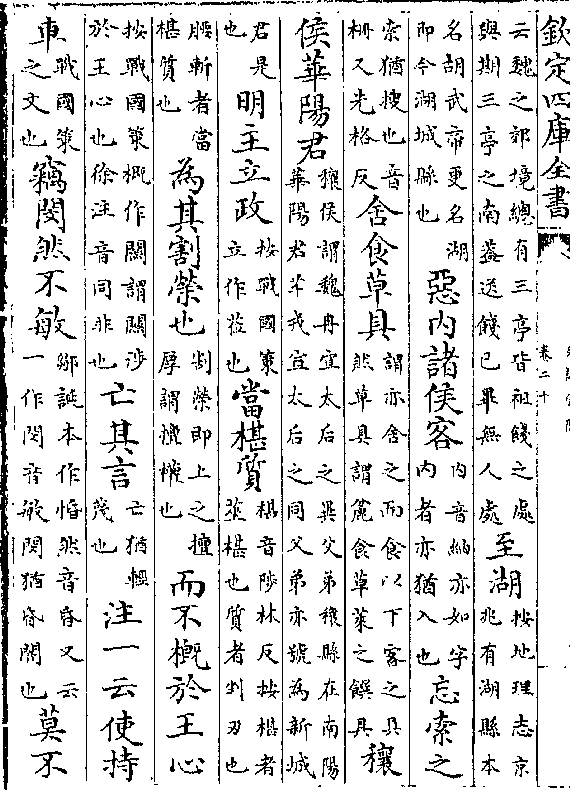 欽定四庫全書
卷二十
云魏之郊境總有三亭皆祖餞之處
與期三亭之南蓋送餞已畢無人處
至湖
按地理志京
兆有湖縣本
名胡武帝更名湖
即今湖城縣也
惡内諸侯客
内音納亦如字
内者亦猶入也
忘索之
索猶搜也音
柵又先格反
舍食草具
謂亦舍之而食以下客之具
然草具謂麄食草菜之饌具
穰
侯華陽君
穰侯謂魏冉宣太后之異父弟穰縣在南陽
華陽君芊戎宣太后之同父弟亦號為新城
君是
也
明主立政
按戰國策
立作莅也
當椹質
椹音陟林反按椹者
莝椹也質者剉刃也
腰斬者當
椹質也
為其割榮也
割榮即上之擅
厚謂擅權也
而不概於王心
按戰國策概作關謂關涉
於王心也徐注音同非也
亡其言
亡猶輕
蔑也
注一云使持
車
戰國策
之文也
竊閔然不敏
鄒誕本作惛然音昏又云
一作閔音敏閔猶昏闇也
莫不